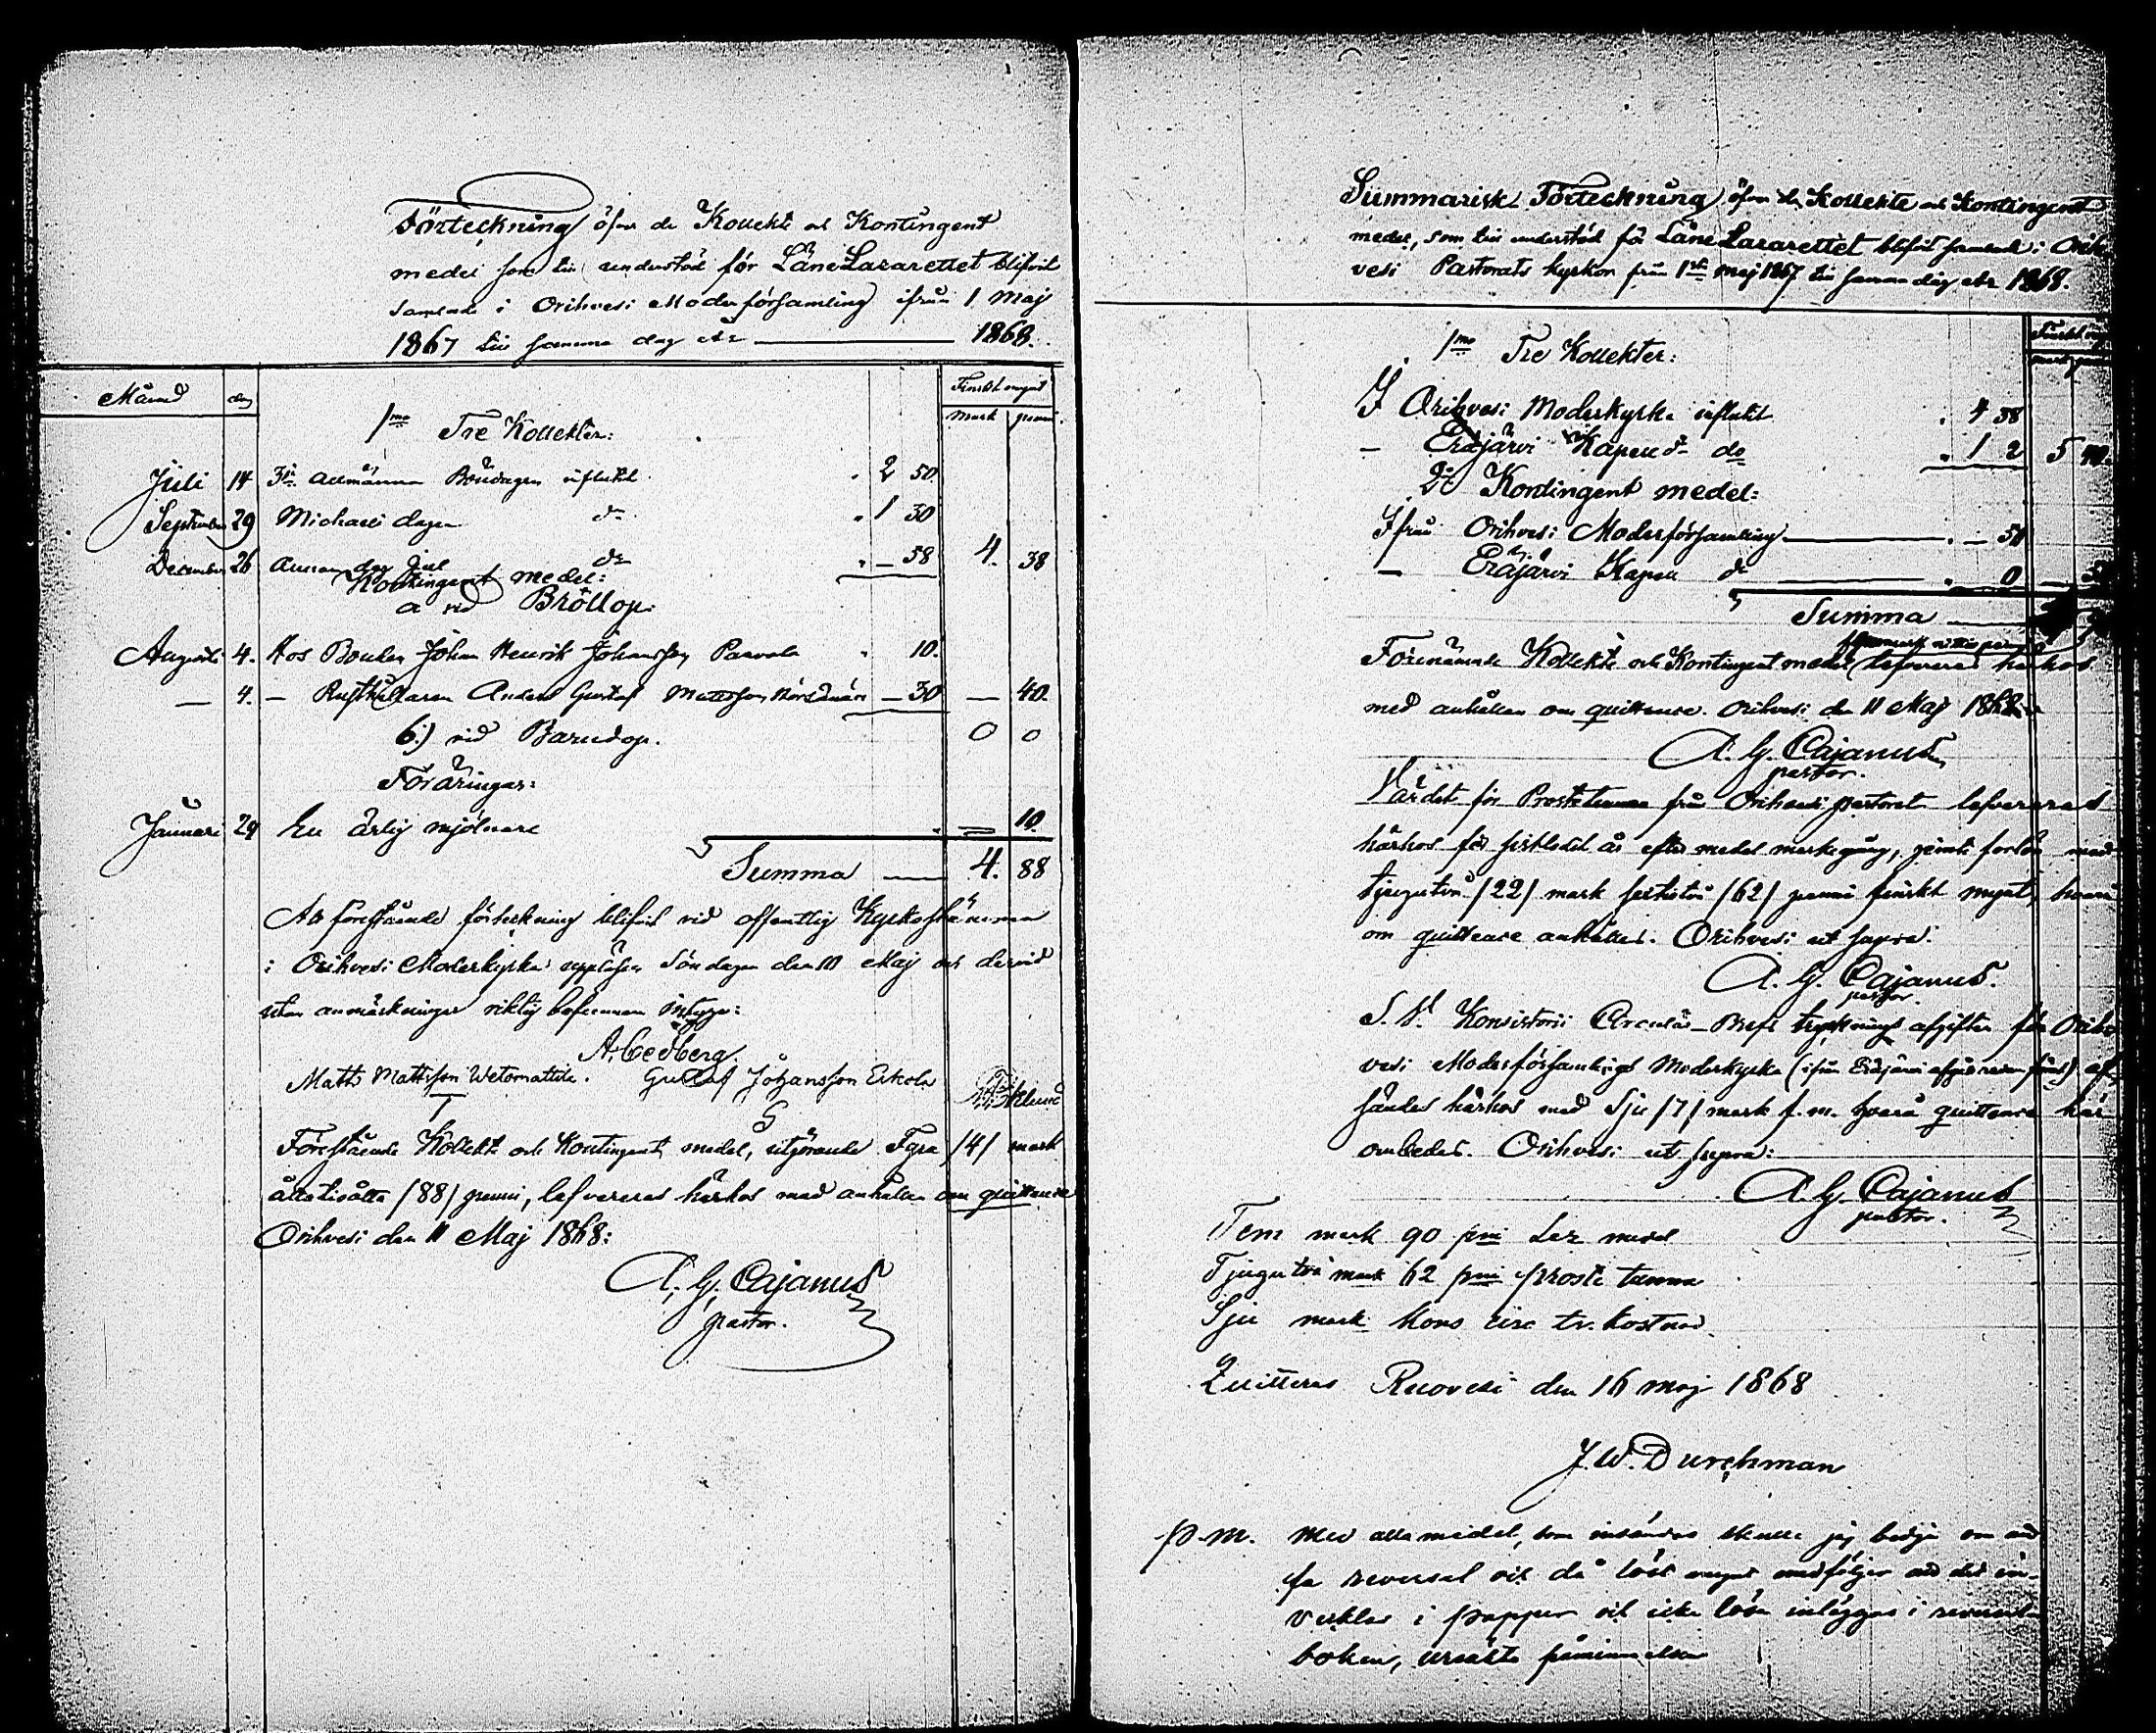 Förteckning öfver de Kollekt och Kontingent
medel som till understöd för Läne Lazarettet blifvit
samlade i Orihvesi Moderförsamling ifrån 1 Maj
1867 till samma dag år 1868.
Månad dag Finskt mynt
mark penni
1mo Tre Kollekter:
Juli 14 3die allmänna Böndagen influtit 2 50
September 29 Michaeli dagen do 1 30
December 26 Annan dag Jul do — 58 4. 38
Kontingent medel:
a vid Bröllop:
Augusti 4. Hos Bonden Johan Henrik Johansson Parvola 10.
— 4. — Rusthållaren Anders Gustaf Mattsson — 30 — 40.
b.) vid Barndop. 0 0
Föräringar:
Januari 29 En ärlig mjölnare — 10.
Summa — 4. 88
At förestående förteckning blifvit vid offentlig Kyrkostämma
i Orihvesi Moderkyrka uppläsen Söndagen den 10 Maj och dervid
utan anmärkningar riktig befunnen intyga:
A. Cedberg.
Matts Mattsson Wetomattila. Gustaf Johansson Erkola
T G
Förestående Kollekt och Kontingent medel, utgörande Fyra /4/ mark
åttatioåtta /88/ penni, lefvereras härhos med anhållan om quittence
Orihvesi den 11 Maj 1868:
A. G. Cajanus
pastor.
Summarisk Förteckning öfver de Kollekte och Kontingent
medel, som till understöd för Läne Lazarettet blifvit samlade i Orih
vesi Pastorats kyrkor från 1sta maj 1867 till samma dag år 1868.
Finskt mynt
mark penni
1mo Tre Kollekter:
I Orihvesi Moderkyrka influtit 4 38
— Eräjärvi Kapell do do 1 2 5 40.
2do Kontingent medel:
Ifrån Orihvesi Moderförsamling — 50
— Eräjärvi Kapell do 0
Summa
Förenämnde Kollekt och Kontingent medel lefvereras härhos
med anhållan om quittence. Orihvesi den 11 Maj 1868
A. G. Cajanus
pastor.
Värdet för Prostetunnan från Orihvesi pastorat lefvereras
härhos för sistledet år efter medel markegång, jemte forlön med
tjugutvå /22/ mark sextiotvå /62/ penni finskt mynt, hvarå
om quittence anhålles. Orihvesi ut supra:
A. G. Cajanus.
pastor
S. V. Konsistorii Circulär-Brefs tryckningsafgiften för Orih
vesi Moderförsamlings Moderkyrka (ifrån Eräjärvi af
sändes härhos med Sju /7/ mark f.m. hvarå quittence här
ombedes. Orihvesi ut supra:
A. G. Cajanus
pastor.
Fem mark 90 pni Laz medel
Tjugutvå mark 62 pni Proste tunna
Sju mark Kons circ tr. kostnad
Quitteras Ruovesi den 16 maj 1868
J. W. Durchman
P.M. Med alla medel, som insändes skulle jag bedja om att
få reversal och då löst mynt medföljer att det in-
vecklas i papper och icke löse inlägges i reversal
boken, ursäkta påminnelsen